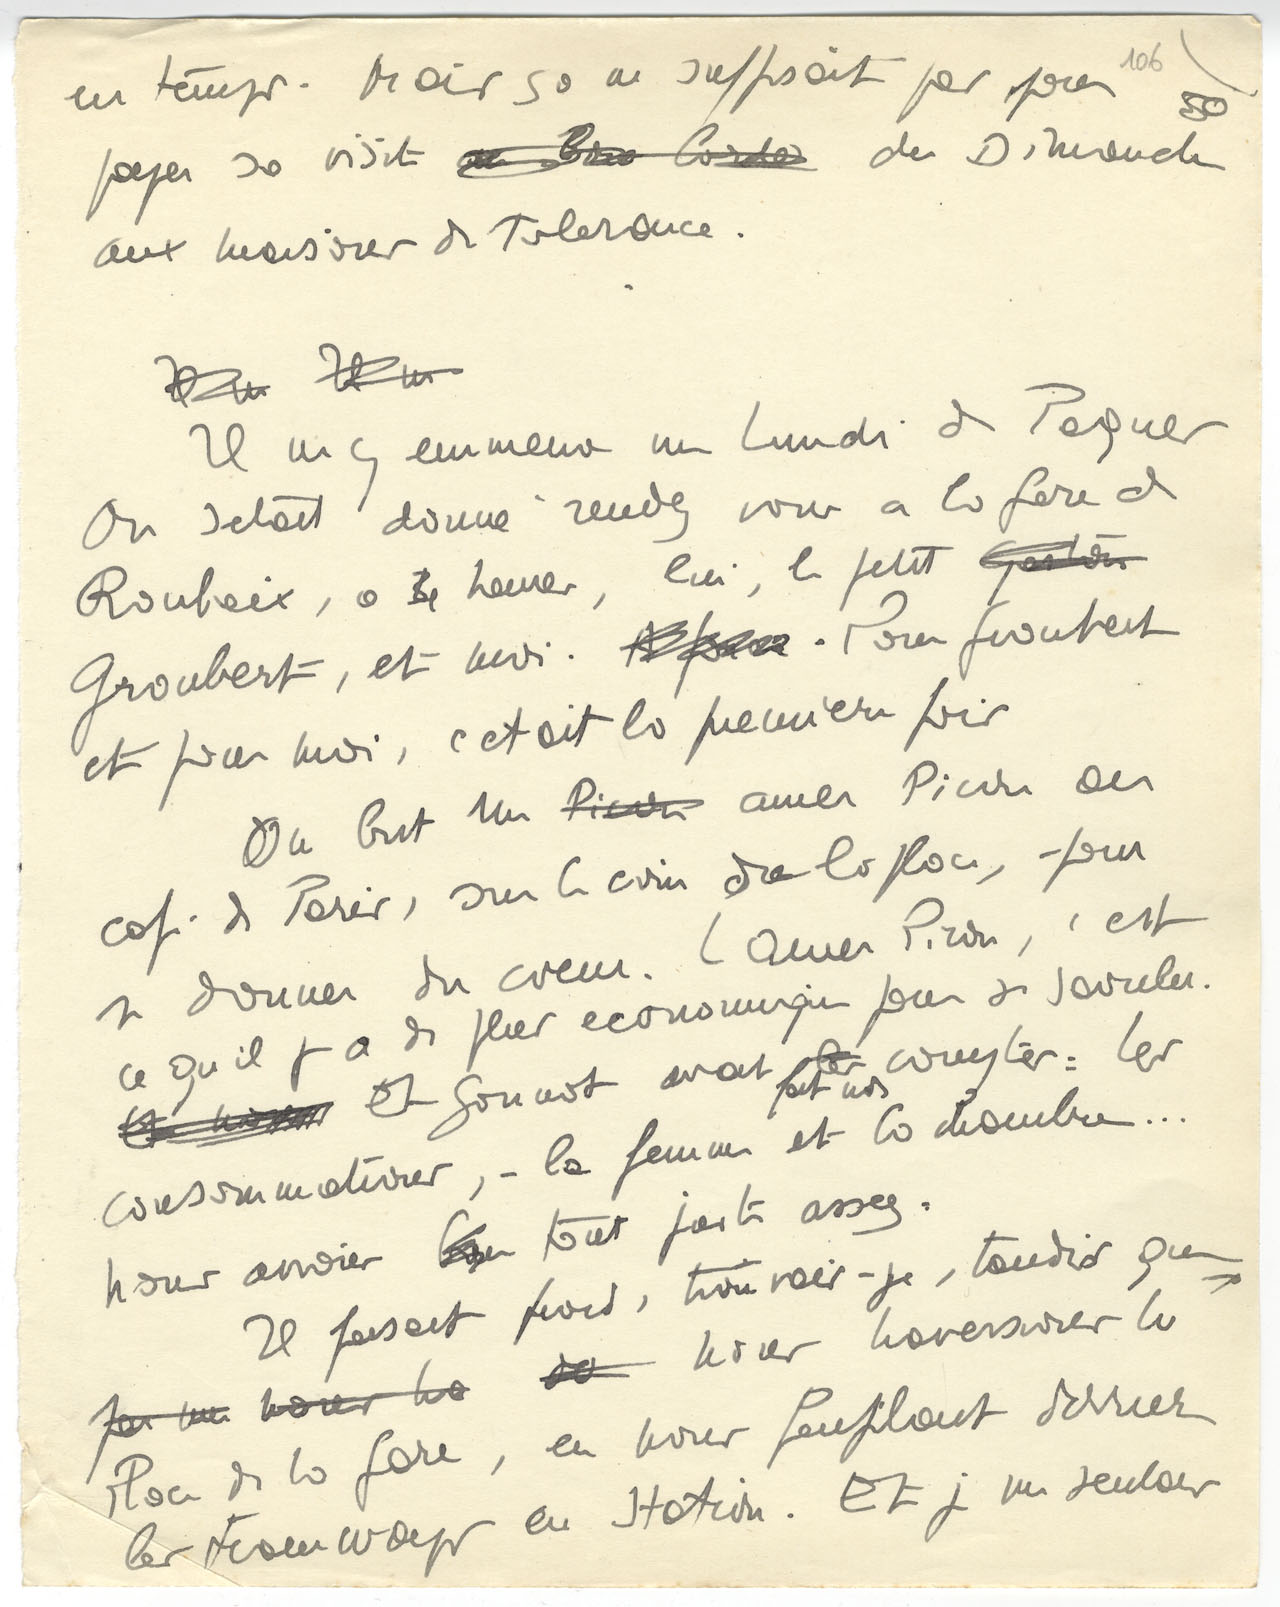 106
50
en temps. Mais ça ne suffisait pas pour
payer sa visite du Dimanche
aux maisons de Tolérance.
Il m'y emmena un Lundi de Paques
On s'était donné rendez vous a la gare de
Roubaix, a heures, lui, le petit Gaston
Groubert, et moi. Pour Groubert
et pour moi, c'etait la premiere fois
On but un Picon amer Picon au
café de Paris, sur le coin de la place, - pour
se donner du coeur. L'amer Picon, c'est
ce qu'il y a de plus economique pour se saouler.
Et Gounot avait les compter : les
fait nos
consommations, - la femme et la chambre...
nous avions tout juste assez.
Il faisait froid, trouvais-je, tandis que
nous traversions la
Place de la Gare, en nous faufilant derriere
les tramways en station. Et je me sentais